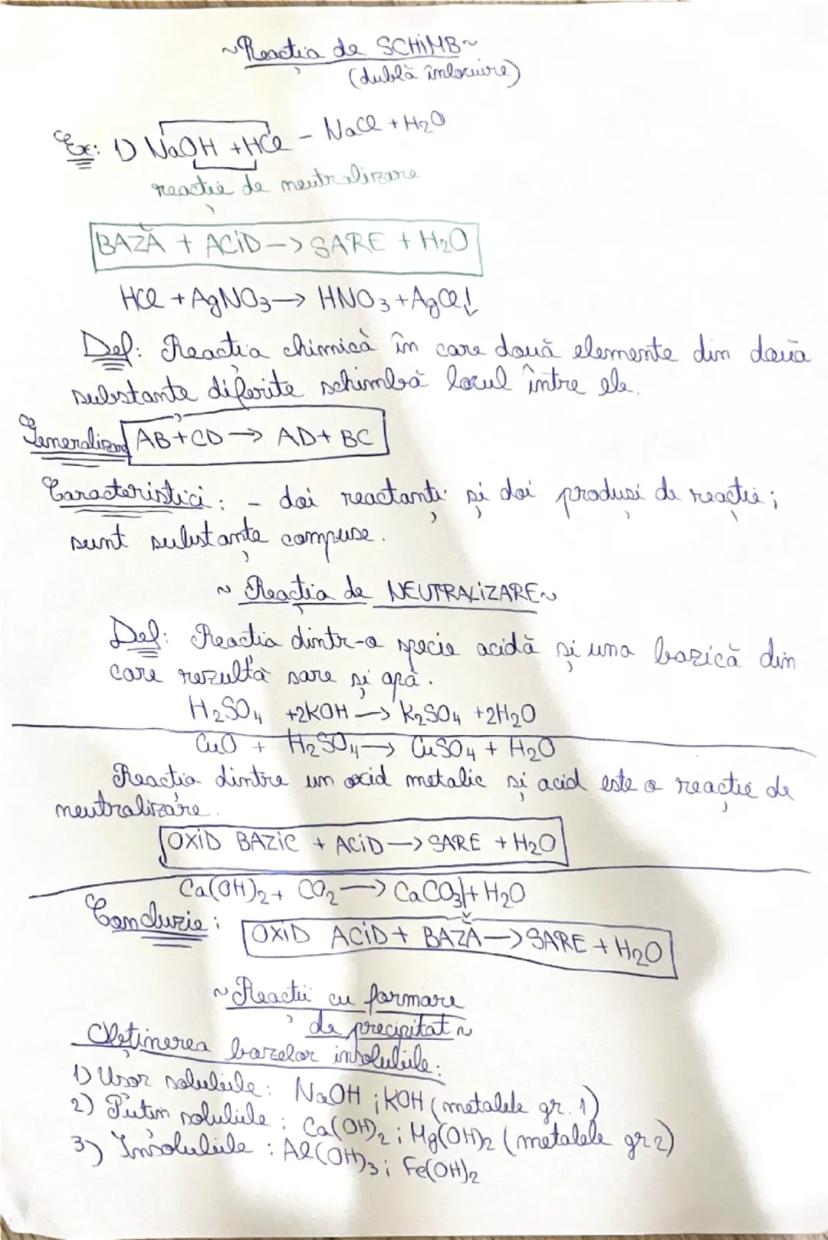 ~Reacția de SCHIMB~
(dublă înlocuire)
Ex: 1) NaOH + HCl - NaCl + H₂O
reacție de neutralizare
BAZĂ + ACiD -> SARE + H₂O
HCl + AgNO₃ -> HNO₃ + AgCl↓
Def: Reacția chimică în care două elemente din două
substanțe diferite schimbă locul între ele.
AB + CD -> AD + BC
Caracteristici: - doi reactanți și doi produși de reacție;
sunt substanțe compuse.
~ Reacția de NEUTRALIZARE~
Def: Reacția dintr-o specie acidă și una bazică din
care rezultă sare și apă.
H₂SO₄ + 2KOH -> K₂SO₄ + 2H₂O
CuO + H₂SO₄ -> CuSO₄ + H₂O
Reacția dintre un oxid metalic și acid este o reacție de
neutralizare.
OXiD BAZiC + ACiD -> SARE + H₂O
Ca(OH)₂ + CO₂ -> CaCO₃↓ + H₂O
Concluzie: OXiD ACiD + BAZĂ -> SARE + H₂O
~Reacții cu formare
de precipitat~
Obținerea bazelor insolubile:
1) Ușor solubile: NaOH ; KOH (metalele gr. 1)
2) Puțin solubile: Ca(OH)₂ ; Mg(OH)₂ (metalele gr 2)
3) Insolubile : Al(OH)₃ ; Fe(OH)₂